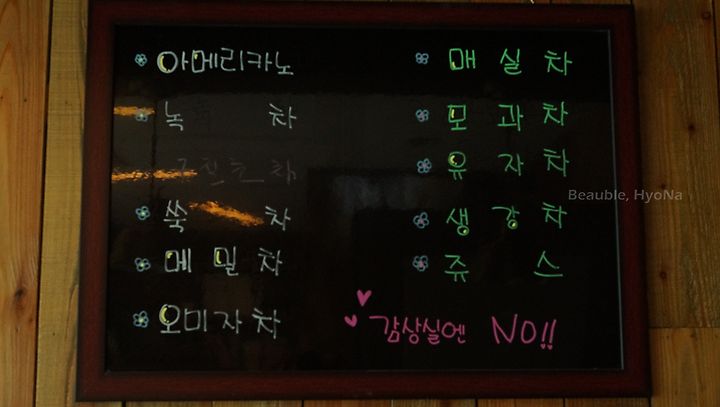 아메리카노
녹 차
쑥 차
메 밀 차
오미자차
매 실 차
모 과 차
유 자 차
생 강 차
쥬 스
감상실엔 NO!!
Beauble, HyoNa